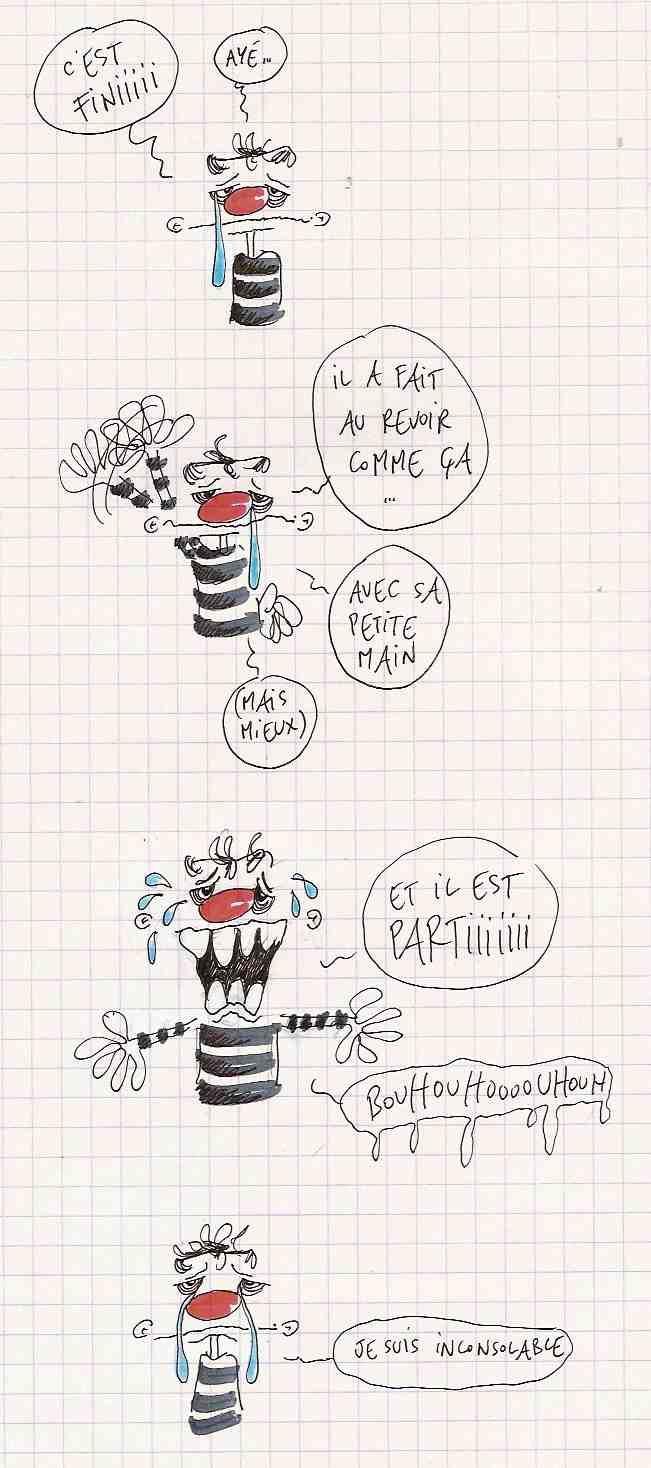 AYÉ...
C'EST
FiNiiiii
iL A FAiT
AU REVOiR
COMME ÇA
...
AVEC SA
PETiTE
MAiN
(MAiS
MiEUX)
ET iL EST
PARTiiiiiii
BOUHOUHOOOOUHOUH
JE SUiS iNCONSOLABLE